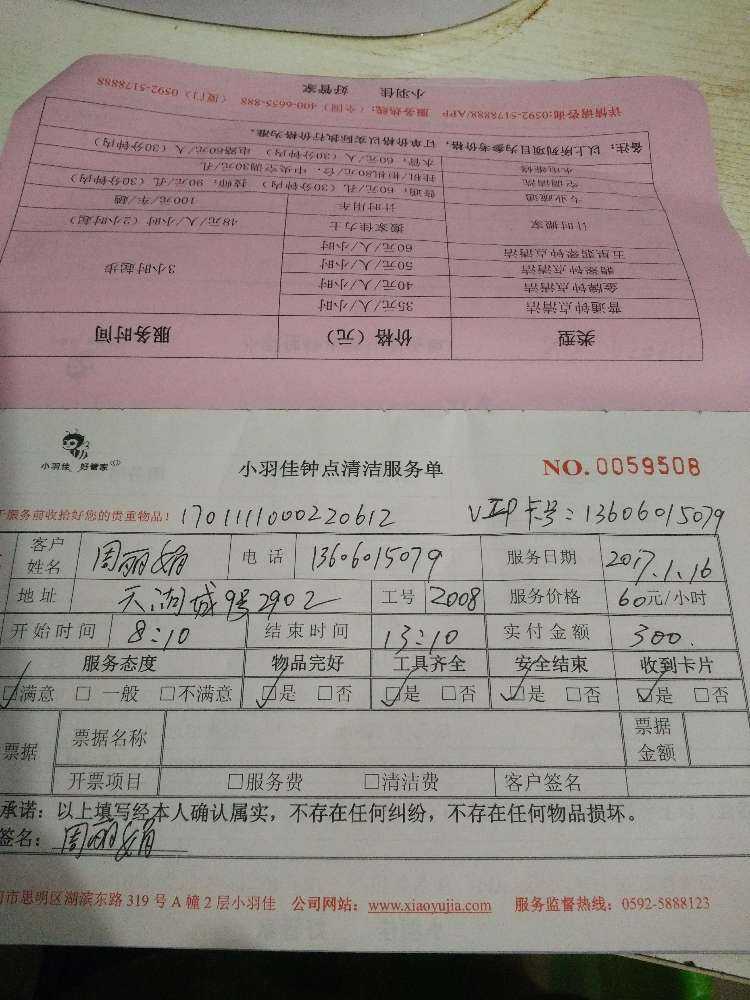 小羽佳 好管家
详情请咨询:0592-5178888/APP 服务热线：(全国) 400-6655-888 (厦门) 0592-5178888
备注：以上所列项目为参考价格，订单价格以实际执行价格为准。
水电维修 水管，60元/人（30分钟内） 电路60元/人（30分钟内）
空调清洗 挂机/柜机80元/台，中央空调30元/孔
专业疏通 普通，60元/孔（30分钟内） 技师，90元/孔（30分钟内）
计时用车 100元/车/趟
计时搬家 搬家佳力士 48元/人/小时（2小时起）
五星翡翠钟点清洁 60元/人/小时
翡翠钟点清洁 50元/人/小时
金牌钟点清洁 40元/人/小时
普通钟点清洁 35元/人/小时
3小时起步
类型 价格（元） 服务时间
小羽佳 好管家
小羽佳钟点清洁服务单 NO.0059508
服务前收拾好您的贵重物品！ 1701111000220612 VIP卡号：13606015079
客户姓名 周丽娟 电话 13606015079 服务日期 2017.1.16
地址 天湖城9号2902 工号 2008 服务价格 60元/小时
开始时间 8:10 结束时间 13:10 实付金额 300.
服务态度 物品完好 工具齐全 安全结束 收到卡片
☑满意 □一般 □不满意 ☑是 □否 ☑是 □否 ☑是 □否 ☑是 □否
票据 票据名称 票据金额
开票项目 □服务费 □清洁费 客户签名
承诺：以上填写经本人确认属实，不存在任何纠纷，不存在任何物品损坏。
签名：周丽娟
市思明区湖滨东路 319 号 A 幢 2 层小羽佳 公司网站：www.xiaoyujia.com 服务监督热线：0592-5888123